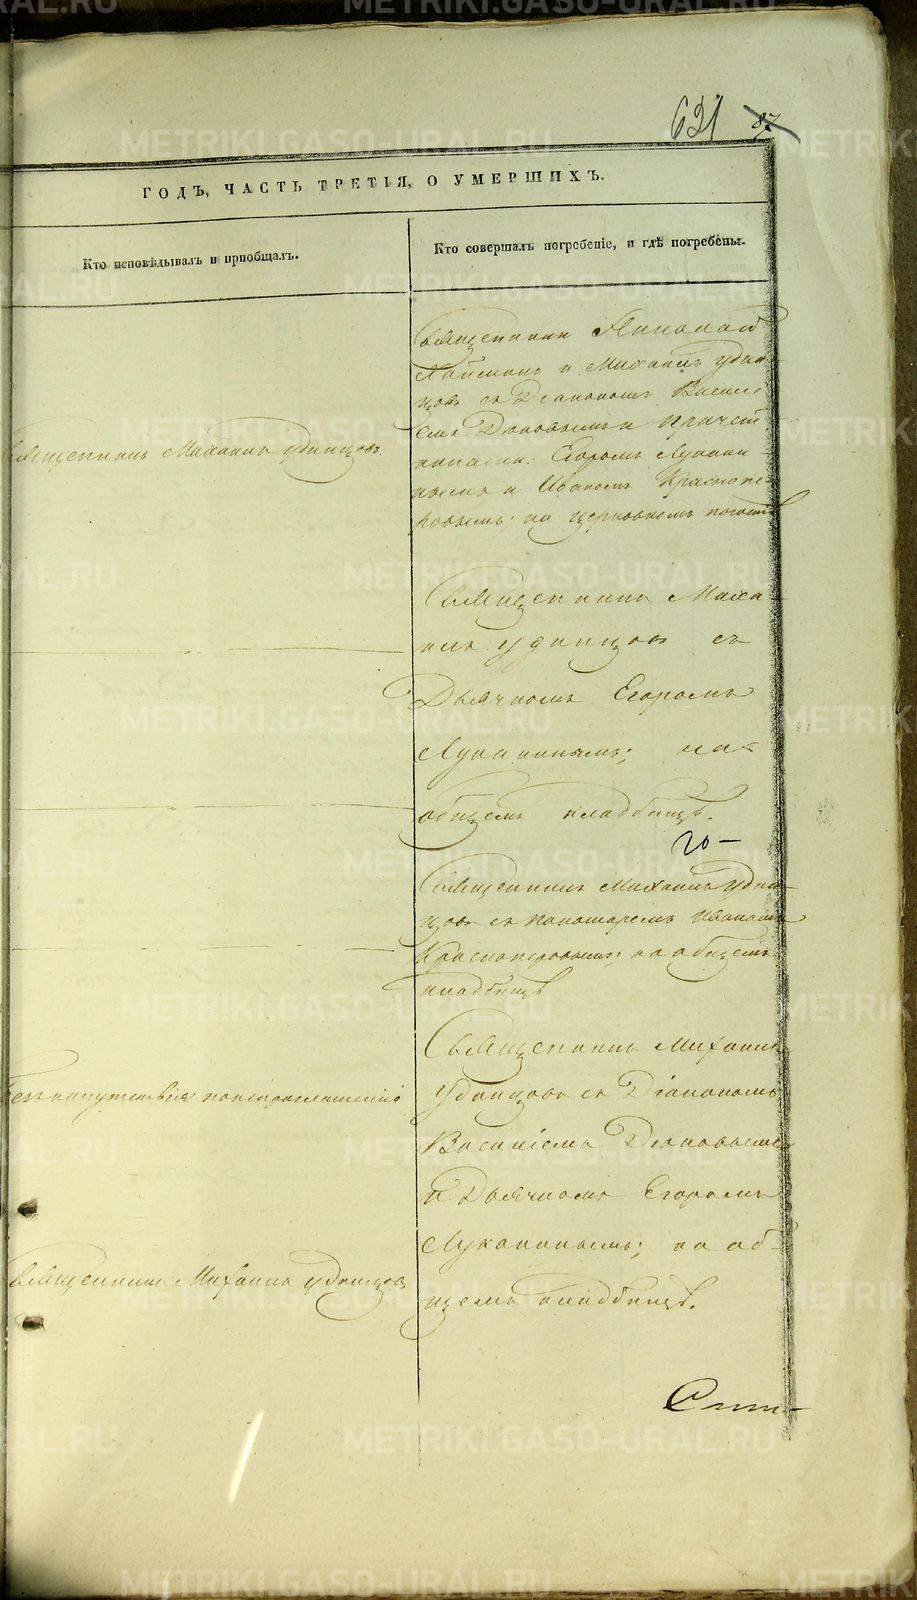 631 87
ГОДЪ, ЧАСТЬ ТРЕТІЯ, О УМЕРШИХЪ.
Кто исповѣдывалъ и пріобщалъ.
Кто совершалъ погребеніе, и гдѣ погребены.
Священникъ Михаилъ Удинцовъ
Священники
и Михаилъ Удин-
цовъ съ Діакономъ Василі-
емъ и причет-
никами: Егоромъ Лукани-
нымъ и Иваномъ Краснопе-
ровымъ; на церковномъ погостѣ
Священникъ Миха-
илъ Удинцовъ съ
Дьячкомъ Егоромъ
Луканинымъ; на
общемъ кладбищѣ.
20 –
Священникъ Михаилъ Удин-
цовъ съ пономаремъ Иваномъ
Красноперовымъ; на общемъ
кладбищѣ
Безъ напутствія
Священникъ Михаилъ
Удинцовъ съ Діакономъ
Василіемъ
и Дьячкомъ Егоромъ
Луканинымъ; на об-
щемъ кладбищѣ.
Священникъ Михаилъ Удинцовъ
METRIKI.GASO-URAL.RU